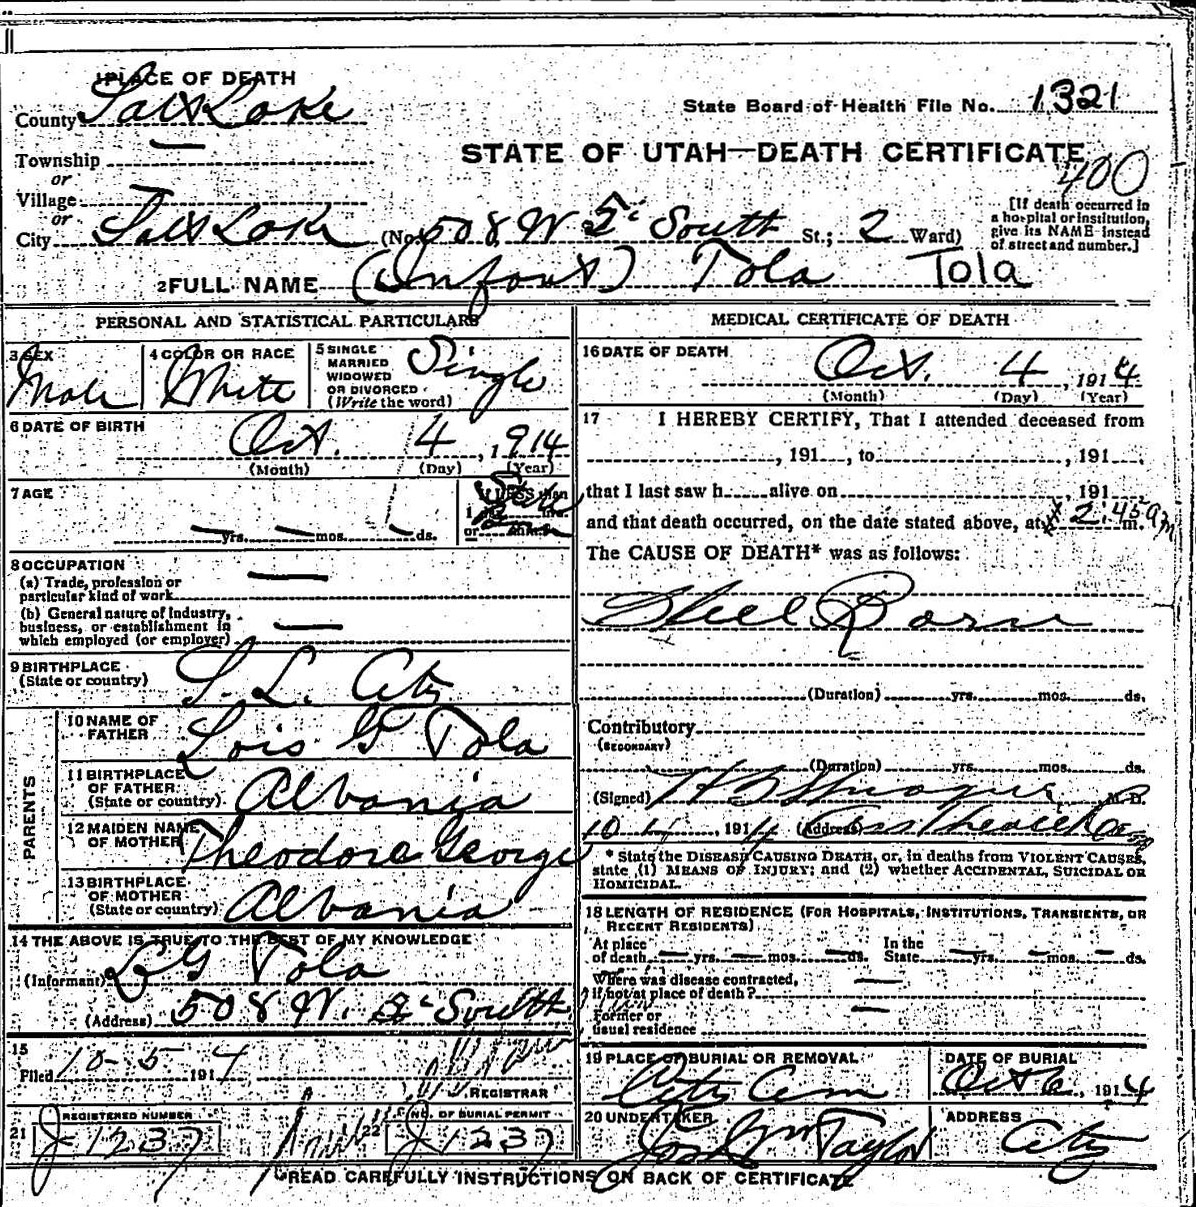 1 PLACE OF DEATH
County Salt Lake
State Board of Health File No. 1321
Township —
STATE OF UTAH—DEATH CERTIFICATE
or
400
Village
or
City Salt Lake (No. 508 W 5' South St.; 2 Ward)
[If death occurred in
a hospital or institution,
give its NAME instead
of street and number.]
2 FULL NAME (Infant) Tola Tola
PERSONAL AND STATISTICAL PARTICULARS
3 SEX Male
4 COLOR OR RACE White
5 SINGLE
MARRIED
WIDOWED
OR DIVORCED
(Write the word) Single
6 DATE OF BIRTH
Oct. 4, 1914
(Month) (Day) (Year)
7 AGE
— yrs. — mos. — ds.
8 OCCUPATION
(a) Trade, profession or
particular kind of work —
(b) General nature of Industry,
business, or establishment in
which employed (or employer) —
9 BIRTHPLACE
(State or country) S. L. City
PARENTS
10 NAME OF
FATHER Lois G Tola
11 BIRTHPLACE
OF FATHER
(State or country) Albania
12 MAIDEN NAME
OF MOTHER Theodora George
13 BIRTHPLACE
OF MOTHER
(State or country) Albania
14 THE ABOVE IS TRUE TO THE BEST OF MY KNOWLEDGE
(Informant) L G Tola
(Address) 508 W. South
15
Filed 10-5 1914
REGISTRAR
REGISTERED NUMBER
21 J 1237
NO. OF BURIAL PERMIT
22 J 1237
MEDICAL CERTIFICATE OF DEATH
16 DATE OF DEATH
Oct. 4, 1914
(Month) (Day) (Year)
17 I HEREBY CERTIFY, That I attended deceased from
, 191 , to , 191
that I last saw h alive on , 191
and that death occurred, on the date stated above, at 2:45 am m.
The CAUSE OF DEATH* was as follows:
Still Born
(Duration) yrs. mos. ds.
Contributory
(SECONDARY)
(Duration) yrs. mos. ds.
(Signed) H B Sprague M. D.
10 4, 1914 (Address)
* State the DISEASE CAUSING DEATH, or, in deaths from VIOLENT CAUSES,
state (1) MEANS OF INJURY; and (2) whether ACCIDENTAL, SUICIDAL OR
HOMICIDAL.
18 LENGTH OF RESIDENCE (FOR HOSPITALS, INSTITUTIONS, TRANSIENTS, OR
RECENT RESIDENTS).
At place
of death — yrs. — mos. — ds.
In the
State — yrs. — mos. — ds.
Where was disease contracted,
If not at place of death? —
Former or
usual residence —
19 PLACE OF BURIAL OR REMOVAL
City Cem
DATE OF BURIAL
Oct 6, 1914
20 UNDERTAKER
Jos Wm Taylor
ADDRESS
City
READ CAREFULLY INSTRUCTIONS ON BACK OF CERTIFICATE